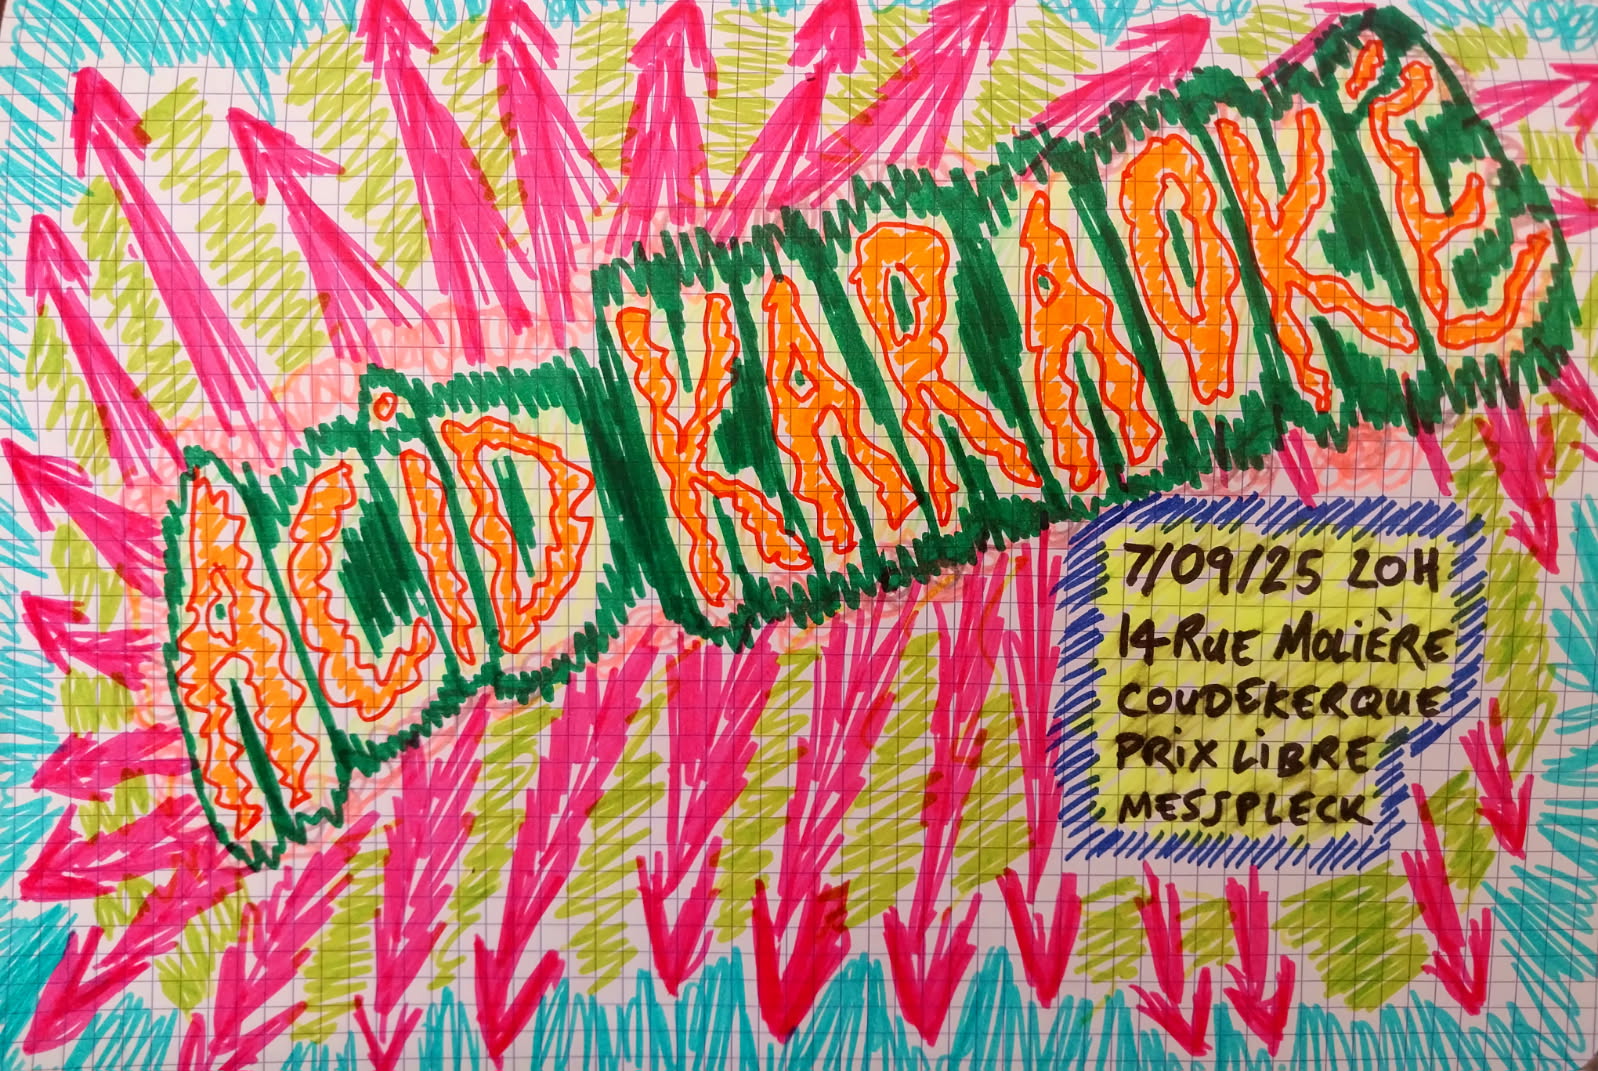 ACiD KARAOKÉ
7/09/25 20H
14 RUE MOLIÈRE
COUDEKERQUE
PRiX LiBRE
MESSPLECK